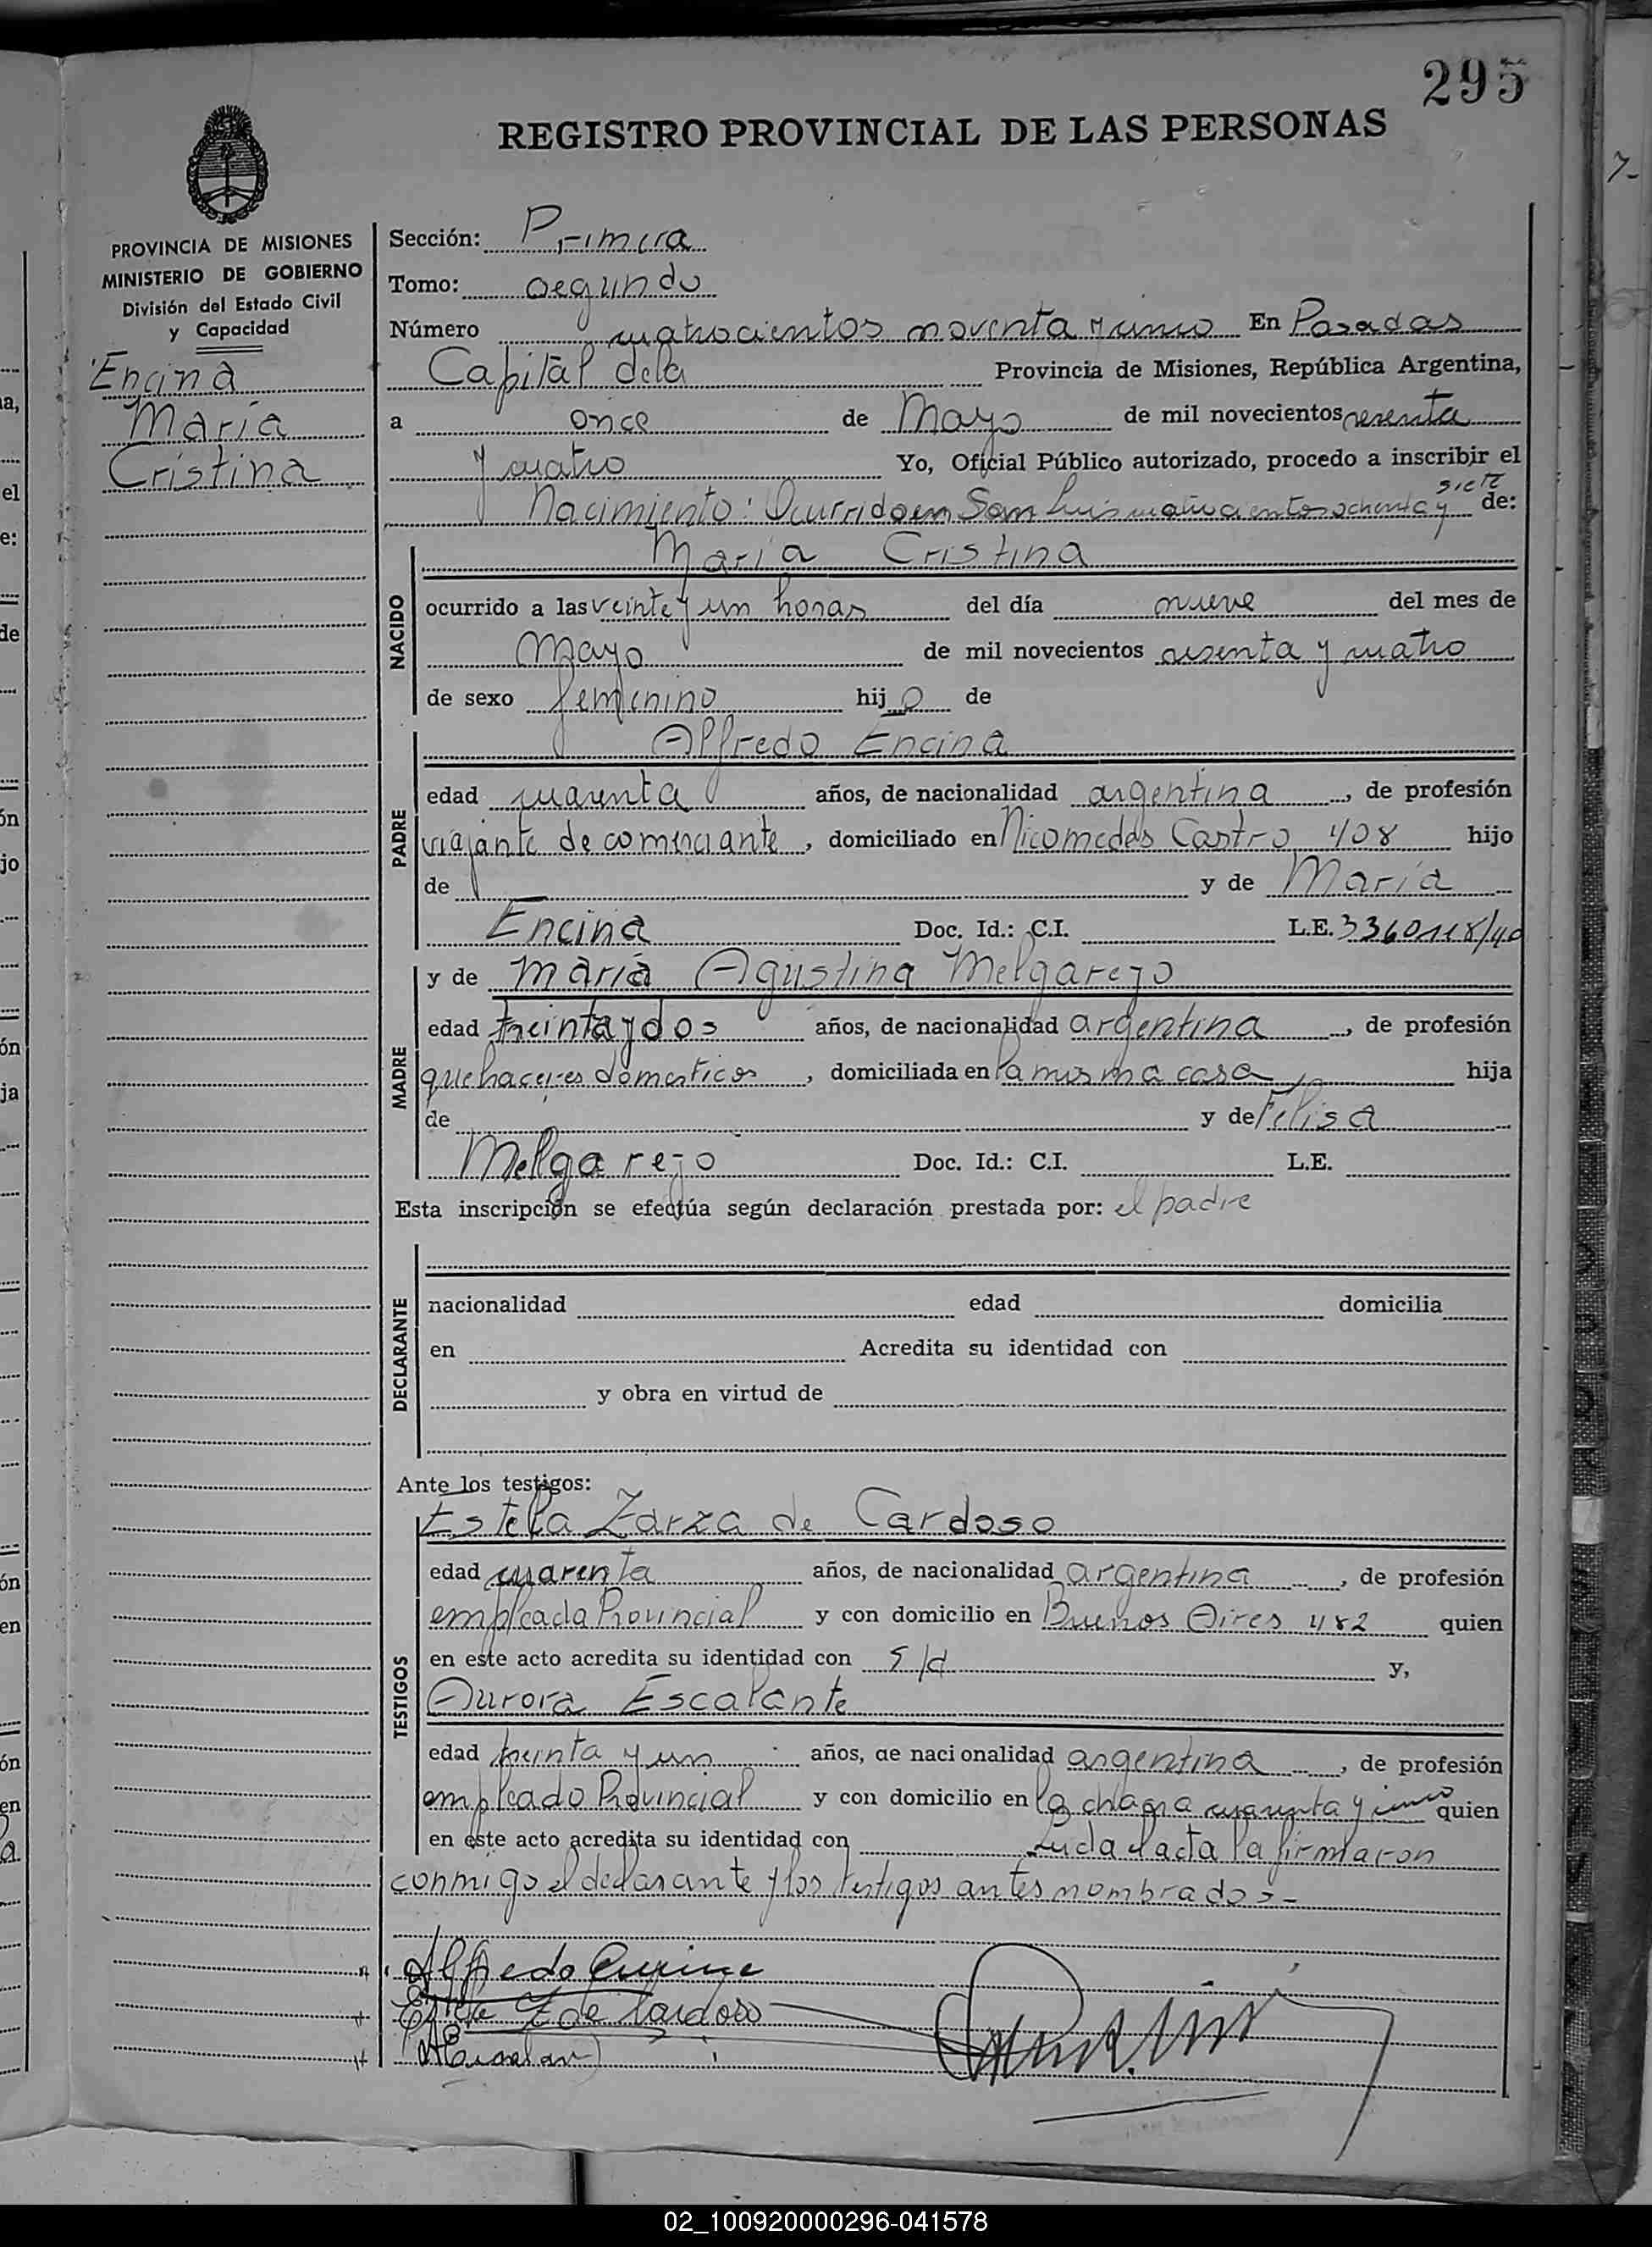 295
REGISTRO PROVINCIAL DE LAS PERSONAS
PROVINCIA DE MISIONES
MINISTERIO DE GOBIERNO
División del Estado Civil
y Capacidad
Encina
María
Cristina
Sección: Primera
Tomo: segundo
Número cuatrocientos noventa y uno En Posadas
Capital dela Provincia de Misiones, República Argentina,
a once de Mayo de mil novecientos sesenta
y cuatro Yo, Oficial Público autorizado, procedo a inscribir el
siete
Nacimiento: Ocurrido en San Luis cuatrocientos ochenta y de:
NACIDO
María Cristina
ocurrido a las veinte y un horas del día nueve del mes de
Mayo de mil novecientos sesenta y cuatro
de sexo femenino hijo de
PADRE
Alfredo Encina
edad cuarenta años, de nacionalidad argentina, de profesión
viajante de comerciante, domiciliado en Nicomedes Castro 408 hijo
de y de María
Encina Doc. Id.: C.I. L.E. 3360118/40
MADRE
y de María Agustina Melgarejo
edad treinta y dos años, de nacionalidad argentina, de profesión
quehaceres domesticos, domiciliada en la misma casa hija
de y de Felisa
Melgarejo Doc. Id.: C.I. L.E.
Esta inscripción se efectúa según declaración prestada por: el padre
DECLARANTE
nacionalidad edad domicilia
en Acredita su identidad con
y obra en virtud de
Ante los testigos:
TESTIGOS
Estela Zarza de Cardoso
edad cuarenta años, de nacionalidad argentina, de profesión
empleada Provincial y con domicilio en Buenos Aires 482 quien
en este acto acredita su identidad con s/d y,
Aurora Escalante
edad treinta y un años, de nacionalidad argentina, de profesión
empleado Provincial y con domicilio en la chacra cuarenta y cinco quien
en este acto acredita su identidad con Leida el acta la firmaron
conmigo el declarante y los testigos antes nombrados-
Alfredo Encina
Estela Z de Cardoso
02_100920000296-041578